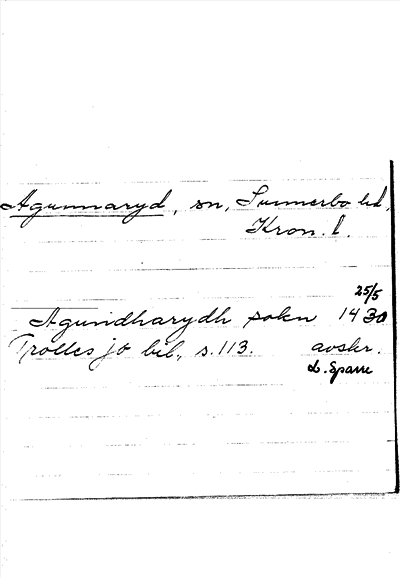 Agunnaryd, sn, Sunnerbo hd,
Kron. l.
25/5
Agundharydh sokn 1430
Trolles jo bil., s. 113. avskr.
L. Sparre